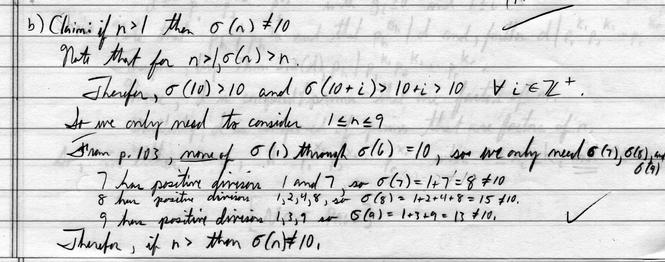 b) Claim: if n>1 then σ(n) ≠ 10
Note that for n>1, σ(n) > n.
Therefor, σ(10) > 10 and σ(10+i) > 10+i > 10 ∀ i ∈ ℤ⁺.
So we only need to consider 1≤n≤9
From p. 103, none of σ(1) through σ(6) = 10, so we only need σ(7), σ(8), and σ(9)
7 has positive divisors 1 and 7, so σ(7) = 1+7 = 8 ≠ 10
8 has positive divisors 1,2,4,8, so σ(8) = 1+2+4+8 = 15 ≠ 10.
9 has positive divisors 1,3,9 so σ(9) = 1+3+9 = 13 ≠ 10.
Therefor, if n> then σ(n) ≠ 10.